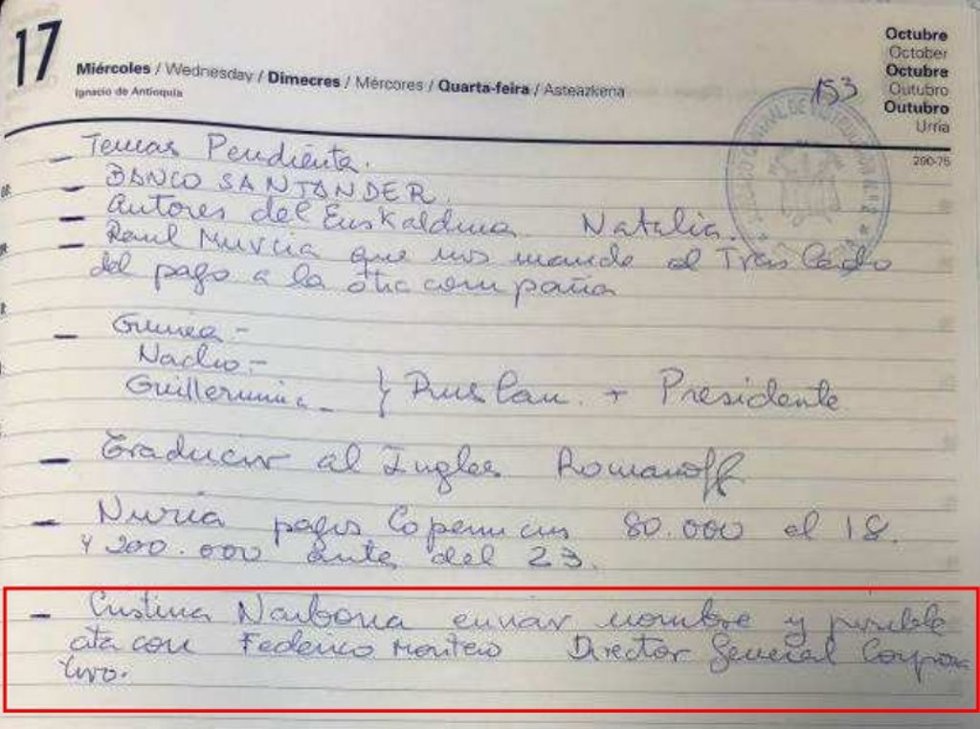 17
Miércoles / Wednesday / Dimecres / Mércores / Quarta-feira / Asteazkena
Ignacio de Antioquía
Octubre
October
Octubre
Outubro
Outubro
Urria
290-75
153
- Temas Pendiente.
- BANCO SANTANDER.
- Autores del Euskalduna. Natalia.
- Raul Murcia que nos mande el Traslado
del pago a la otra compañia
- Guinea -
Nacho -
Guillermina - } Ruslan. + Presidente
- Traducir al Ingles Romanoff
- Nuria pagos Copernicus 80.000 el 18.
y 200.000 ante del 23.
- Cristina Narbona enviar nombre y posible
cita con Federico Montero Director General Corpora
tivo.